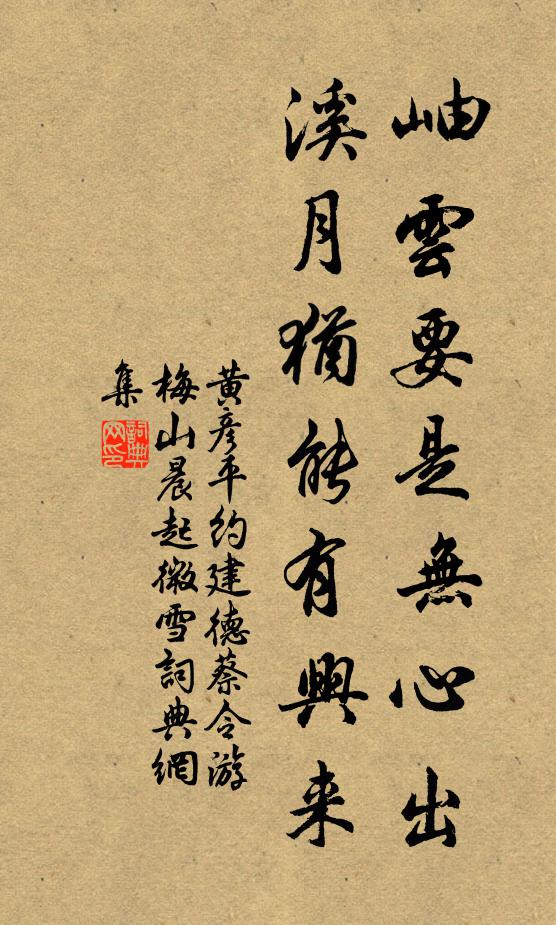 岫雲要是無心出
溪月猶能有興来
黄彦平約建德蔡令游
梅山晨起微雪詞典網
集
詞典网印